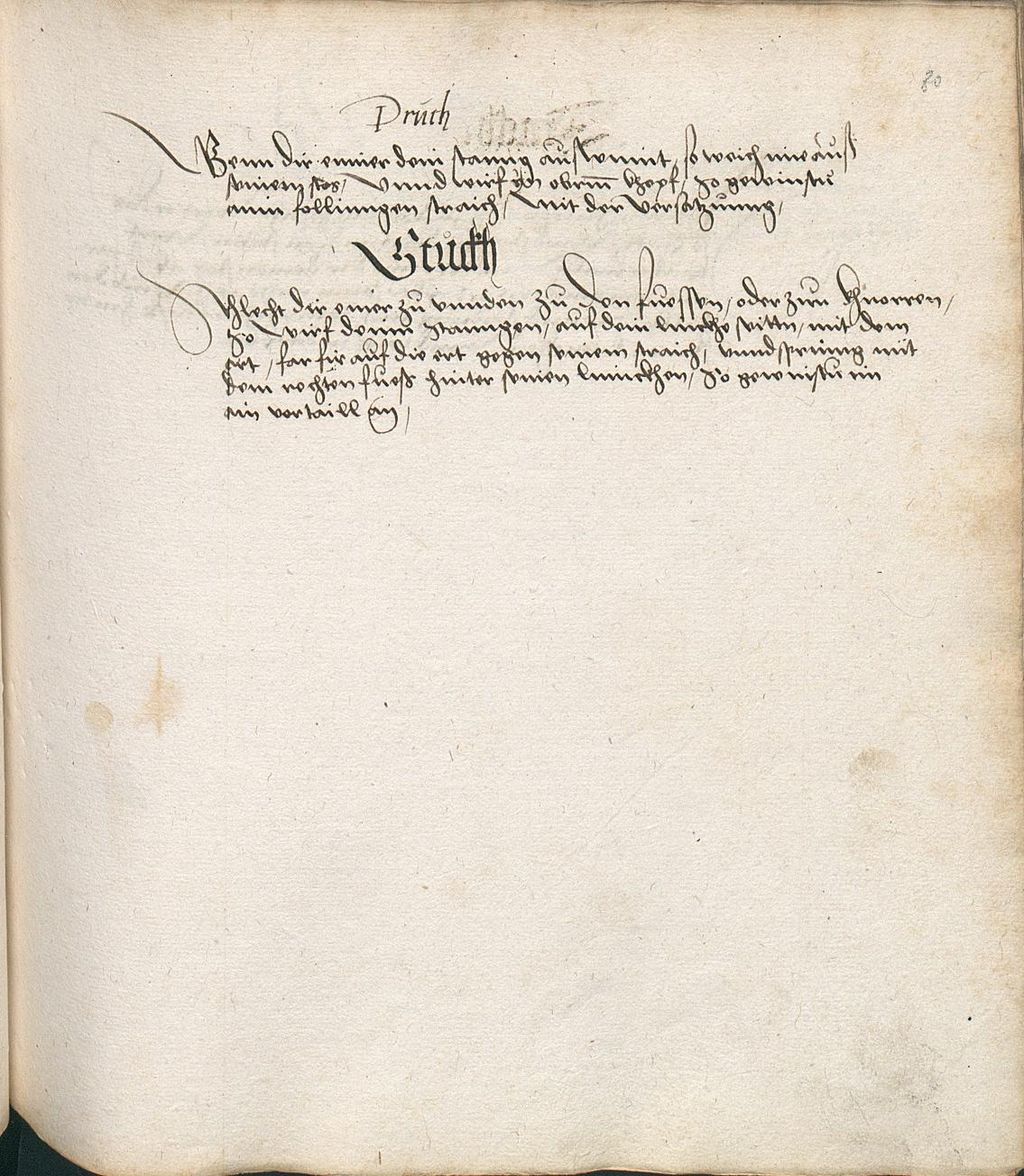 80
Pruch
Wenn dir ein̄er dein stanng aus winnt, so weich nie auß
seinem stos, Vnnd wirf im obrm̄ khopf, So gewinstu
ainn follinngen straich, Mit der Versatzúnng,
Stuckh
Schlecht dir einer zu vnnden Zu Den fuessen, oder zun Khnorren,
So Wirf deinn Stanngen, auf dein linckhe seittn, mit dem
ort, far fir auf die ert gegen seinem straich, vnnd spring mit
dem rechten fueß hinter seinen linnckhen, So gewinstu im
ain vortaill an,